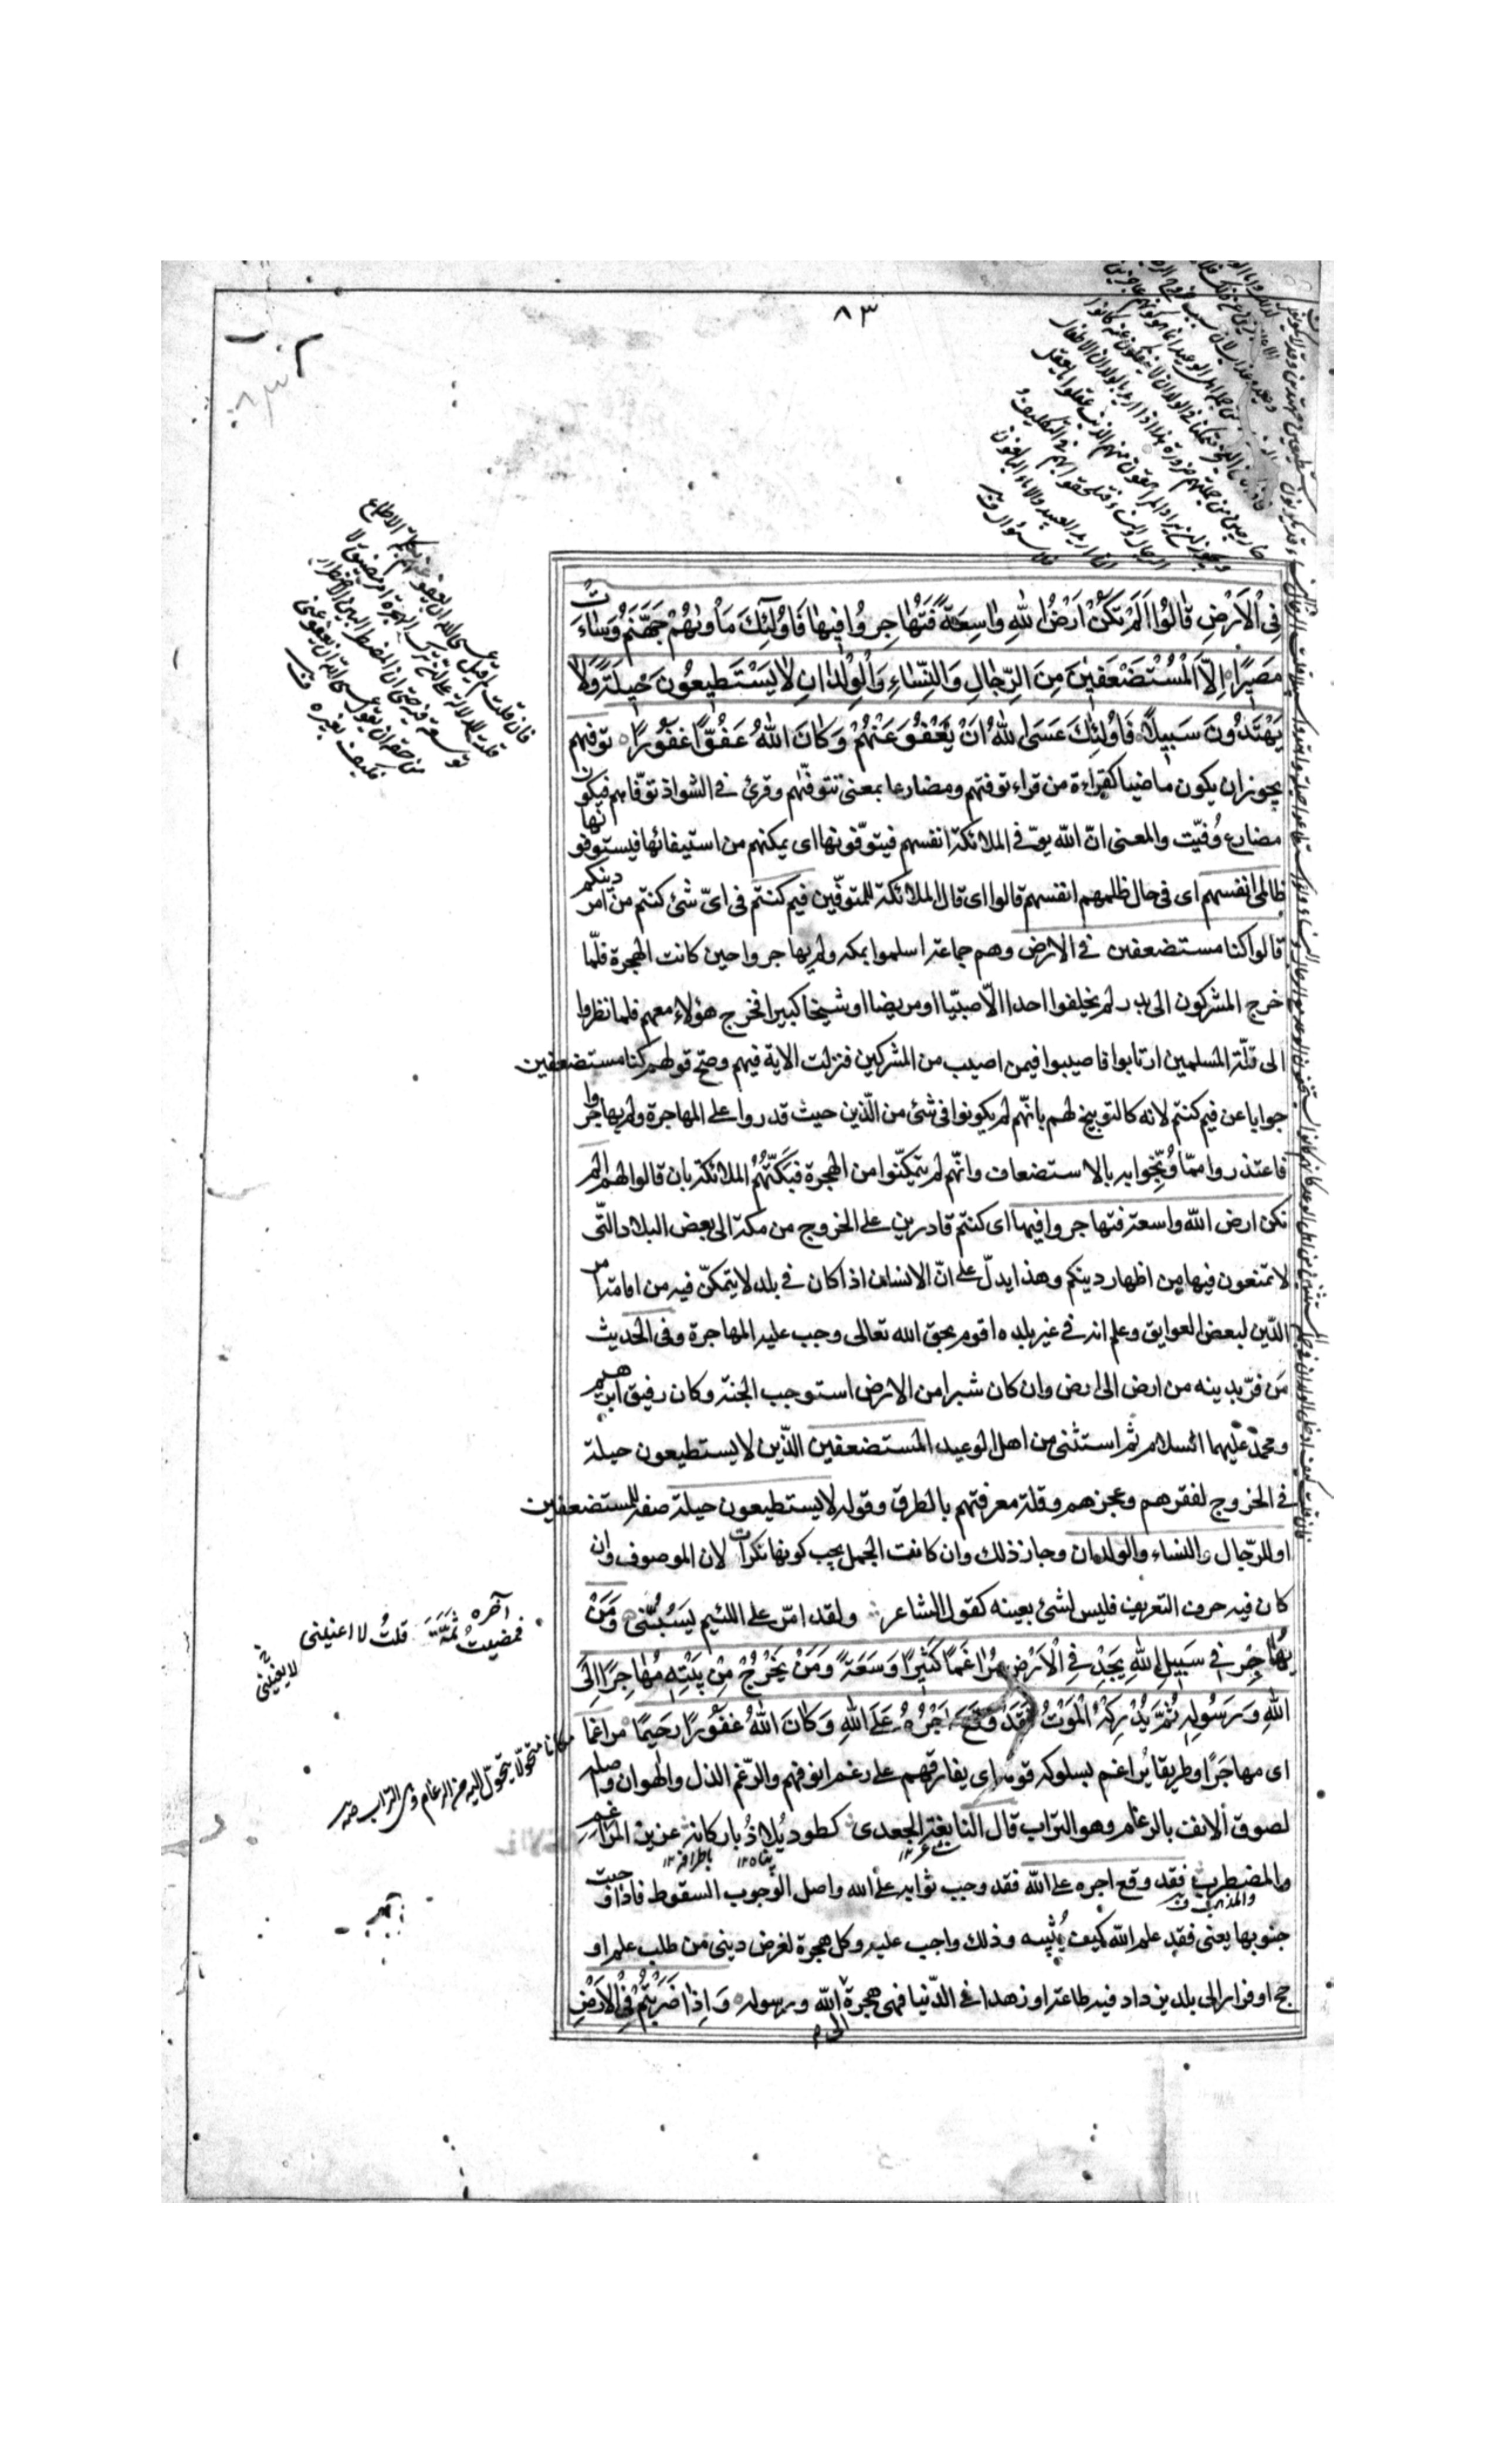 ٨٣
فِى الْاَرْضِ قٰالُوا اَلَمْ تَكُنْ اَرْضُ اللهِ وٰاسِعَةً فَتُهٰاجِرُوا فِيهٰا فَاُولٰئِكَ مَاْوٰيهُمْ جَهَنَّمُ وَسٰاءَتْ
مَصِيرًا اِلاَّ الْمُسْتَضْعَفِينَ مِنَ الرِّجٰالِ وَالنِّسٰاءِ وَالْوِلْدٰانِ لٰا يَسْتَطِيعُونَ حِيلَةً وَلٰا
يَهْتَدُونَ سَبِيلًا فَاُولٰئِكَ عَسَى اللهُ اَنْ يَعْفُوَ عَنْهُمْ وَكٰانَ اللهُ عَفُوًّا غَفُورًا توفيهم
يجوز ان يكون ماضيا كقراءة من قراء توفتهم ومضارعا بمعنى تتوفّيهم وقرئ فى الشواذ توفّاهم فيكون
مضارع وُفيّت والمعنى انّ الله يوفّى الملائكة انفسهم فيتوفّونها اى يمكنهم من استيفائها فيستوفونها
ظالمى انفسهم اى فى حال ظلمهم انفسهم قالوا اى قال الملائكة للمتوفّين فيم كنتم فى اىّ شئ كنتم من امر دينكم
قالوا كنا مستضعفين فى الارض وهم جماعة اسلموا بمكه ولم يهاجروا حين كانت الهجرة فلمّا
خرج المشركون الى بدر لم يخلفوا احدا الّا صبيّا او مريضا او شيخا كبيرا فخرج هؤلاء معهم فلما نظروا
الى قلّة المسلمين ارتابوا فاصيبوا فيمن اصيب من المشركين فنزلت الاية فيهم وصحّ قولهم كنا مستضعفين
جوابا عن فيم كنتم لانه كالتوبيخ لهم بانّهم لم يكونوا فى شئ من الدّين حيث قدروا على المهاجرة ولم يهاجروا
فاعتذروا ممّا وُبّخوا به بالاستضعاف وانّهم لم يتمكّنوا من الهجرة فبَكّتَهُم الملائكة بان قالوا لهم الم
تكن ارض الله واسعة فتهاجروا فيها اى كنتم قادرين على الخروج من مكة الى بعض البلاد الّتى
لا تمنعون فيها من اظهار دينكم وهذا يدلّ على انّ الانسان اذا كان فى بلد لا يتمكّن فيه من اقامة امر
الدّين لبعض العوايق وعلم انه فى غير بلده اقوم بحق الله تعالى وجب عليه المهاجرة وفى الحديث
مَن فرّ بدينه من ارض الى ارض وان كان شبرا من الارض استوجب الجنة وكان رفيق ابرهيم
ومحمّد عليهما السلام ثم استثنى من اهل الوعيد المستضعفين الذّين لا يستطيعون حيلة
فى الخروج لفقرهم وعجزهم وقلة معرفتهم بالطرق وقوله لا يستطيعون حيلة صفة للمستضعفين
او للرّجال والنساء والولدان وجاز ذلك وان كانت الجمل يجب كونها نكرات لان الموصوف وان
كان فيه حرف التعريف فليس لشئ بعينه كقول الشاعر ولقد امرّ على اللئيم يَسُبُّنى وَمَنْ
يُهٰاجِرْ فِى سَبِيلِ اللهِ يَجِدْ فِى الْاَرْضِ مُرٰاغَمًا كَثِيرًا وَسَعَةً وَمَنْ يَخْرُجْ مِنْ بَيْتِهِ مُهٰاجِرًا اِلَى
اللهِ وَرَسُولِهِ ثُمَّ يُدْرِكْهُ الْمَوْتُ فَقَدْ وَقَعَ اَجْرُهُ عَلَى اللهِ وَكٰانَ اللهُ غَفُورًا رَحِيمًا مراغما
اى مهاجَرًا وطريقا يُراغم بسلوكه قومه اى يفارقهم على رغم انوفهم والرّغم الذل والهوان واصله
لصوق الانف بالرغام وهو التراب قال النابغة الجعدى كطود يُلاذُ باركانه عزيز المُراغم
والمضطرب فقد وقع اجره على الله فقد وجب ثوابه على الله واصل الوجوب السقوط فاذا وجبت
جنوبها يعنى فقد علم الله كيف يُثيبه وذلك واجب عليه وكل هجرة لغرض دينى من طلب علم او
حج او فرار الى بلد يزداد فيه طاعة او زهدا فى الدّنيا فهى هجرة الى الله ورسوله وَاِذٰا ضَرَبْتُمْ فِى الْاَرْضِ
والمذهب
فان قلت لم قيل عسى الله ان يعفو عنهم بكلمة الاطماع
قلت للدلالة على ان ترك الهجرة امر مضيق لا
توسعة فيه حتى ان المضطر البين الاضطرار
من حقه ان يقول عسى الله ان يعفو عنى
فكيف بغيره
آخره
فمضيتُ ثَمَّةَ قلتُ لا يعنينى
مكانا متحولا يتحوّل اليه من الرغام وهى التراب